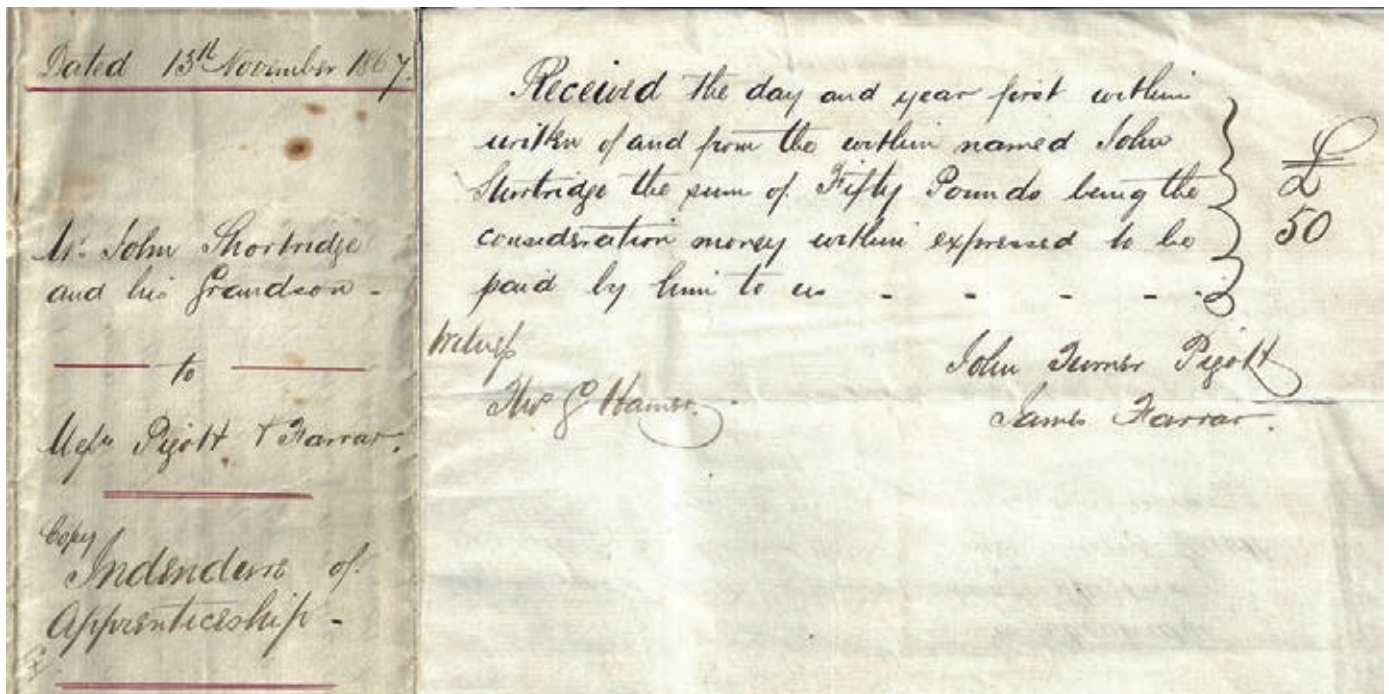 Dated 13th November 1867.
Mr. John Shortridge
and his Grandson -
to
Messrs Pigott & Farrar.
Copy
Indenture of
Apprenticeship -
Received the day and year first within
written of and from the within named John
Shortridge the sum of Fifty Pounds being the
consideration money within expressed to be
paid by him to us - - - - -
£
50
Witness
Thos G Hamer
John Turner Pigott
James Farrar.